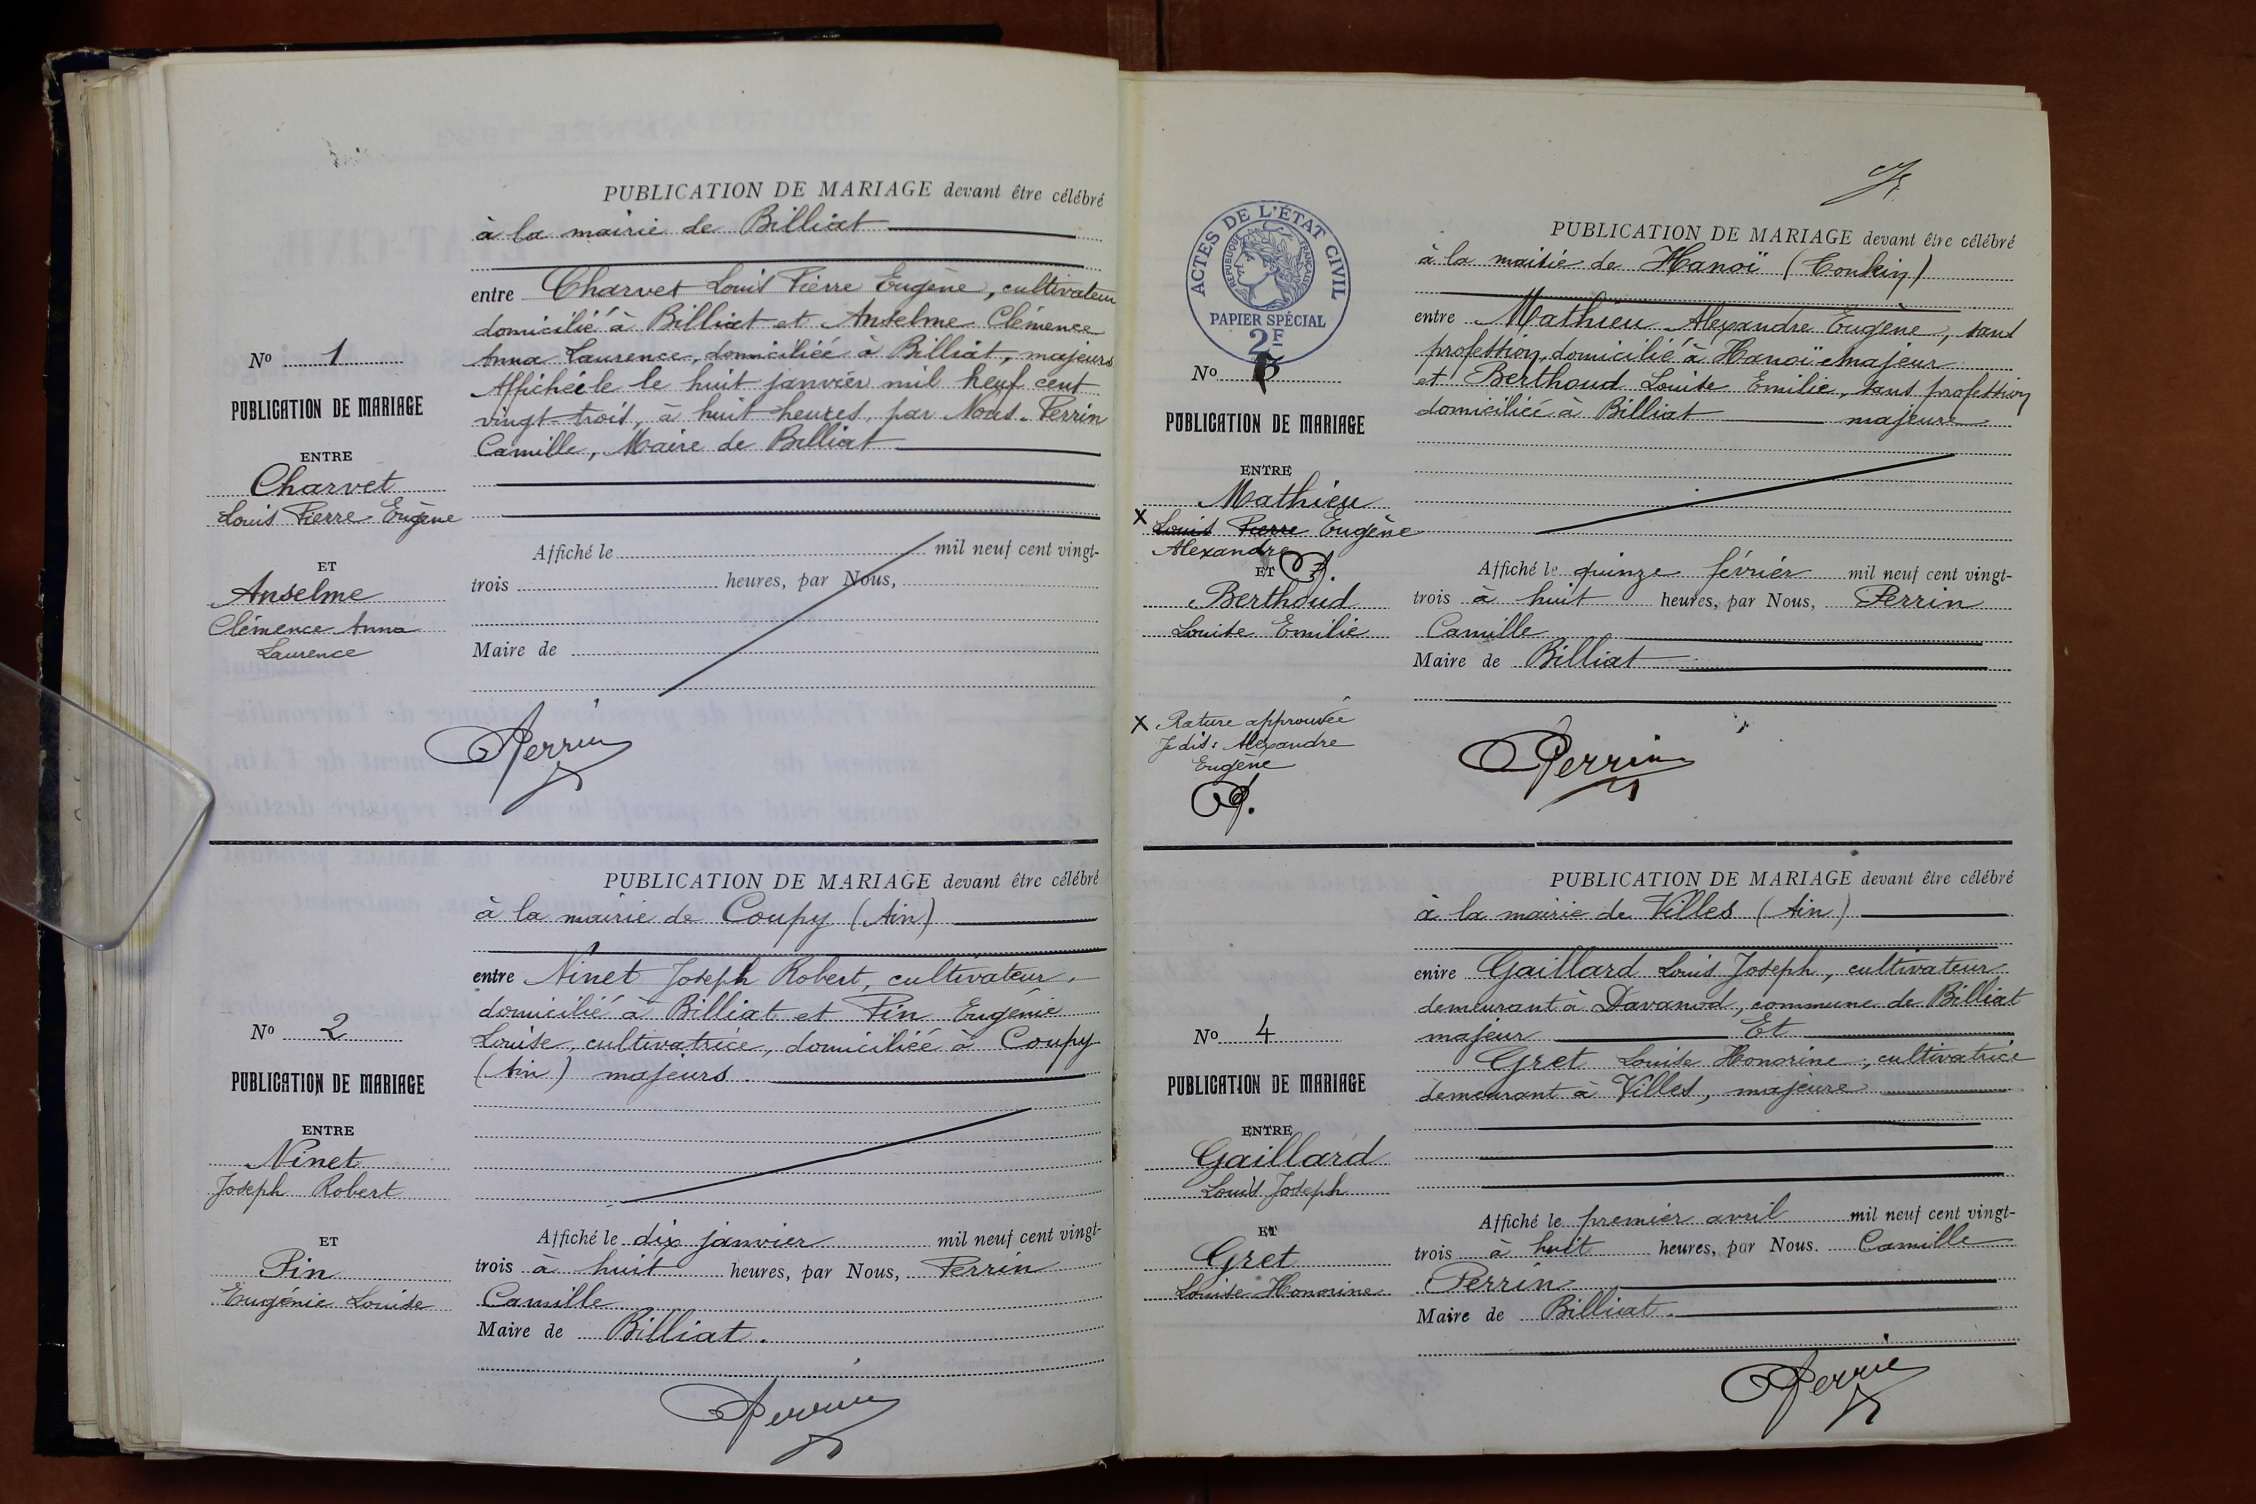 PUBLICATION DE MARIAGE devant être célébré
à la mairie de Billiat
entre Charvet Louis Pierre Eugène, cultivateur
domicilié à Billiat et Anselme Clémence
Anna Laurence, domiciliée à Billiat, majeurs
Affichée le le huit janvier mil neuf cent
vingt-trois, à huit heures, par Nous. Perrin
Camille, Maire de Billiat
No 1
PUBLICATION DE MARIAGE
ENTRE
Charvet
Louis Pierre Eugène
ET
Anselme
Clémence Anna
Laurence
Affiché le mil neuf cent vingt-
trois heures, par Nous,
Maire de
Perrin
PUBLICATION DE MARIAGE devant être célébré
à la mairie de Coupy (Ain)
entre Ninet Joseph Robert, cultivateur,
domicilié à Billiat et Pin Eugénie
Louise, cultivatrice, domiciliée à Coupy
(Ain) majeurs.
No 2
PUBLICATION DE MARIAGE
ENTRE
Ninet
Joseph Robert
ET
Pin
Eugénie Louise
Affiché le dix janvier mil neuf cent vingt-
trois à huit heures, par Nous, Perrin
Camille
Maire de Billiat.
Perrin
ACTES DE L'ÉTAT CIVIL
RÉPUBLIQUE FRANÇAISE
PAPIER SPÉCIAL
2F
PUBLICATION DE MARIAGE devant être célébré
à la mairie de Hanoï (Tonkin)
entre Mathieu Alexandre Eugène, sans
profession, domicilié à Hanoï majeur
et Berthoud Louise Emilie, sans profession
domiciliée à Billiat majeure
No 3
PUBLICATION DE MARIAGE
ENTRE
Mathieu
x Louis Pierre Eugène
Alexandre
ET
Berthoud
Louise Emilie
Affiché le quinze février mil neuf cent vingt-
trois à huit heures, par Nous, Perrin
Camille
Maire de Billiat
x Rature approuvée
Je dis: Alexandre
Eugène
Perrin
PUBLICATION DE MARIAGE devant être célébré
à la mairie de Villes (Ain)
entre Gaillard Louis Joseph, cultivateur
demeurant à Davanod, commune de Billiat
majeur Et
Gret Louise Honorine, cultivatrice
demeurant à Villes, majeure
No 4
PUBLICATION DE MARIAGE
ENTRE
Gaillard
Louis Joseph
ET
Gret
Louise Honorine
Affiché le premier avril mil neuf cent vingt-
trois à huit heures, par Nous. Camille
Perrin
Maire de Billiat.
Perrin